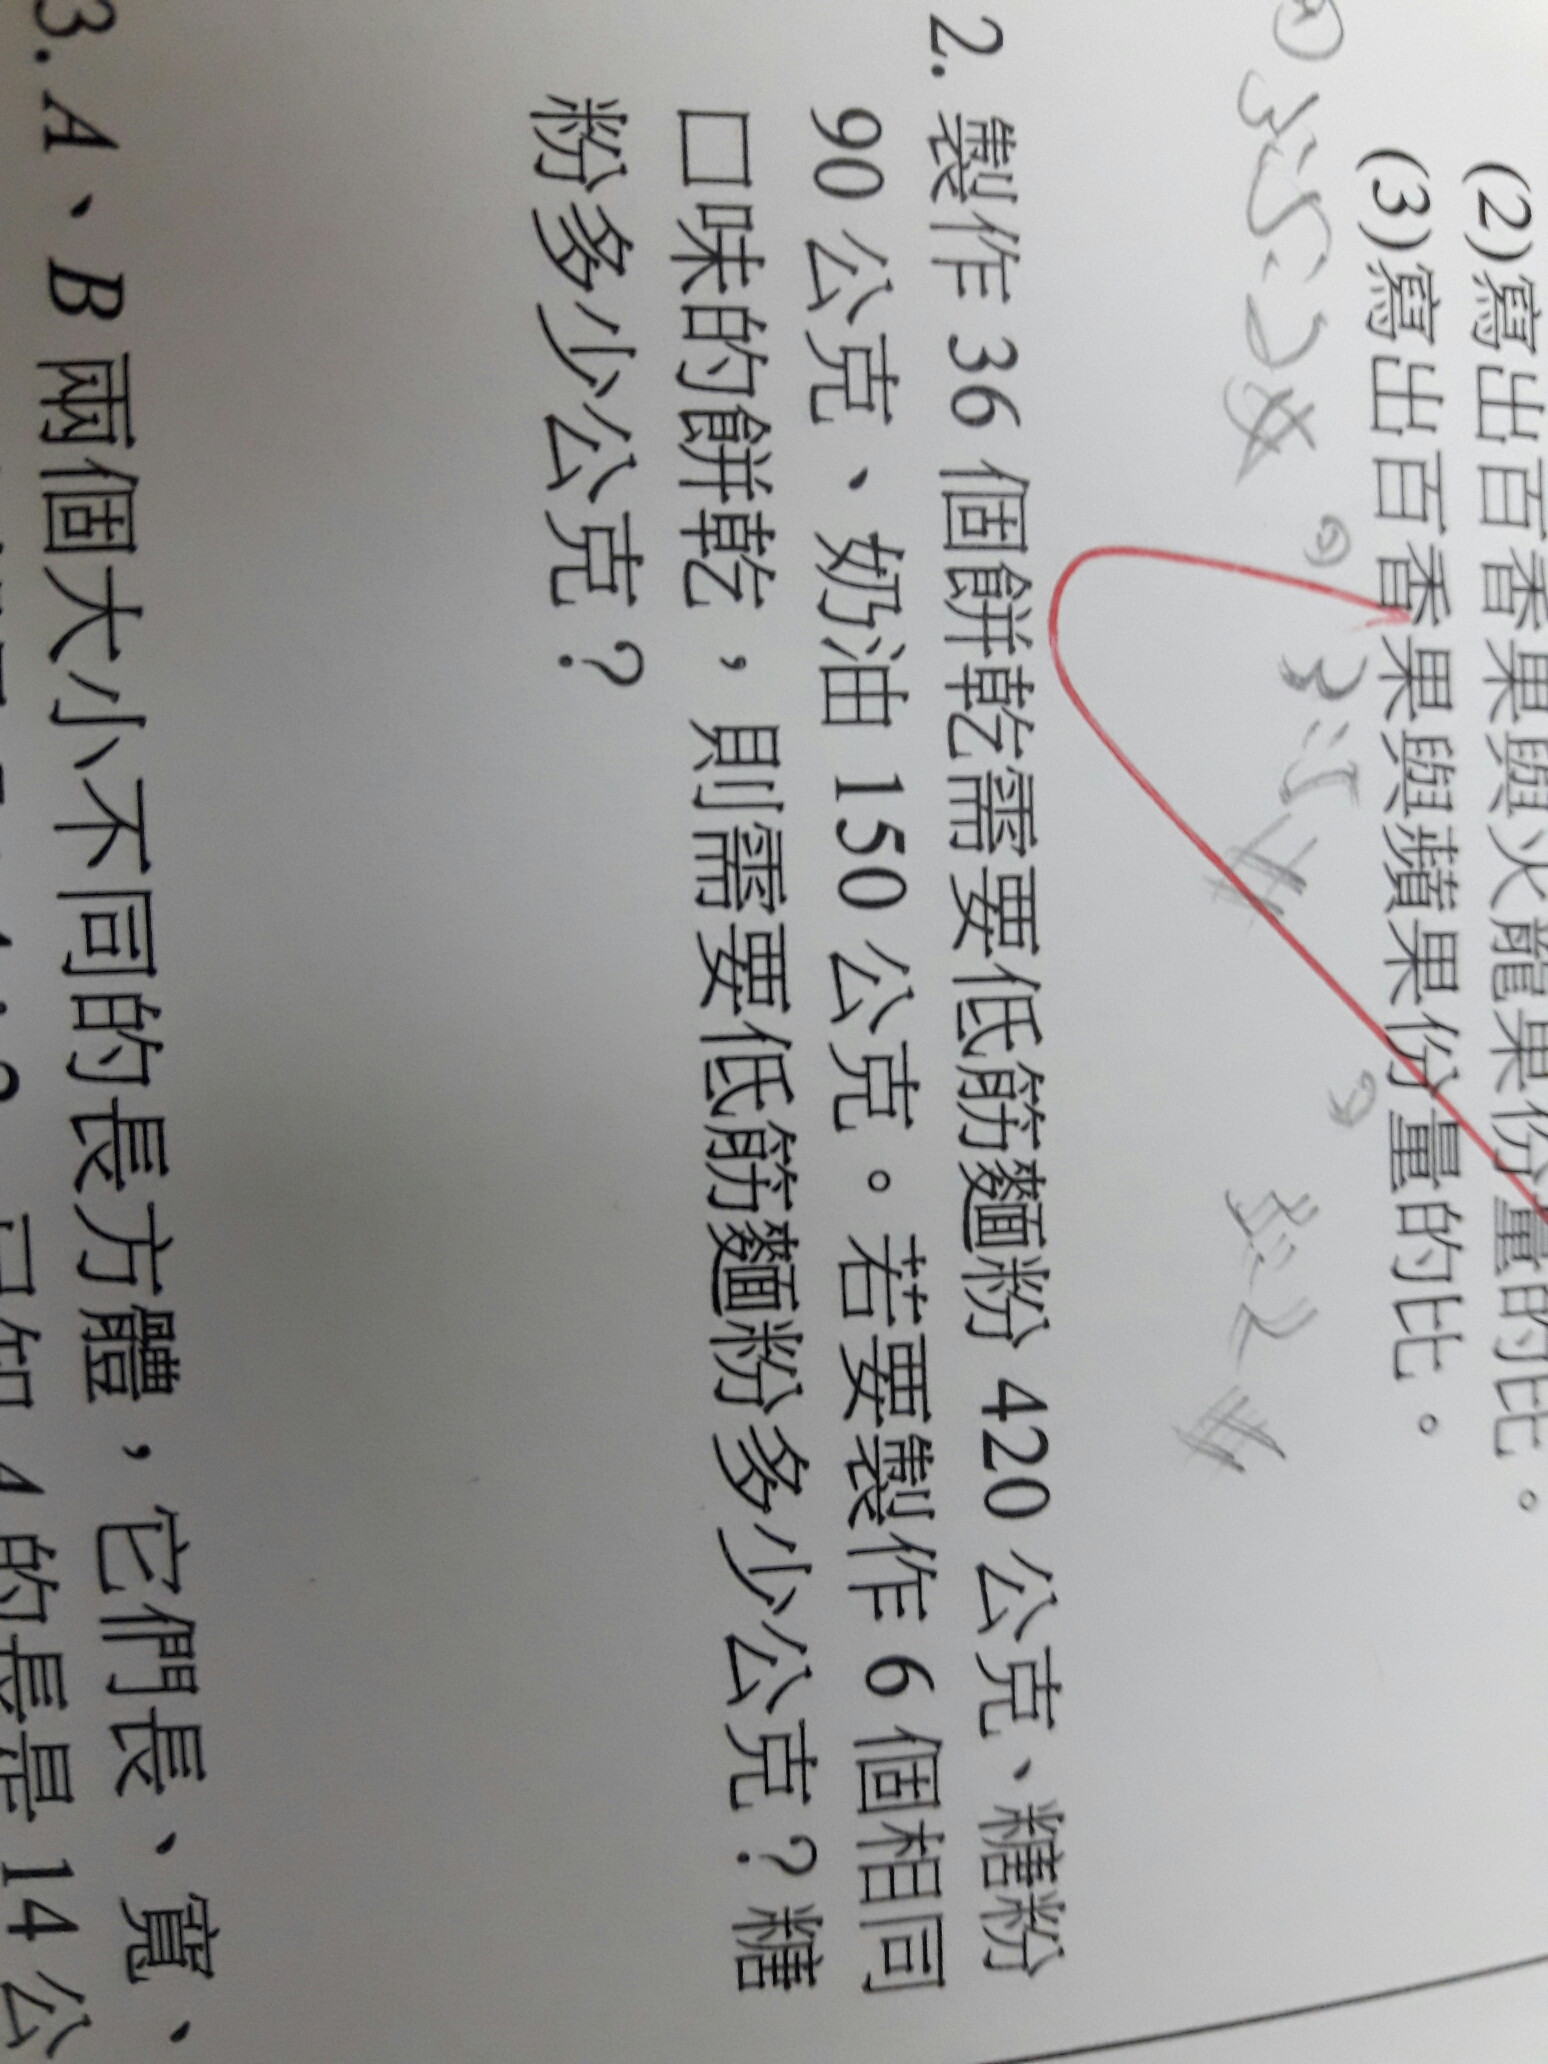 (2)寫出百香果與火龍果份量的比。
(3)寫出百香果與蘋果份量的比。
3:5
2. 製作 36 個餅乾需要低筋麵粉 420 公克、糖粉
90 公克、奶油 150 公克。若要製作 6 個相同
口味的餅乾，則需要低筋麵粉多少公克？糖
粉多少公克？
3. A、B 兩個大小不同的長方體，它們長、寬、
的長是 14 公